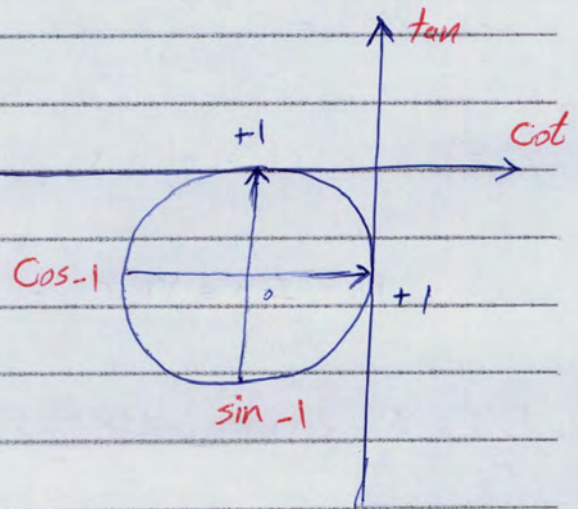 tan
+1
Cot
Cos -1
o
+1
sin -1